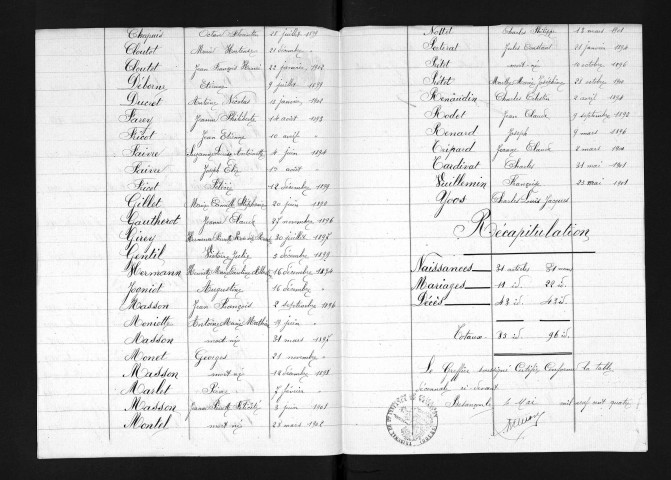 Chapuis Octave 28 juillet 189
Cloutot Marie 21 décembre "
Cloutot Jean François Henri 22 janvier 1902
Déborne Etienne 9 juillet 1899
Ducret Antoine Nicolas 12 janvier 1902
Farey Jeanne Philiberte 14 août 1893
Ficot Jean Etienne 10 avril "
Faivre Suzanne Louise Antoinette 4 juin 1894
Faivre Joseph Elie 19 août "
Ficot 12 décembre 1899
Gillet Marie Camille Stéphanie 20 juin 1898
Gautherot Jeanne Claude 27 novembre 1896
Girey 30 juillet 1895
Gentil Victorine Julie 3 décembre 1899
Hermann Henriette 16 décembre 1894
Jooniot Augustine 16 décembre "
Masson Jean François 2 septembre 1896
Moniotte Antoine Marie 19 juin "
Masson mort-né 31 mars 1895
Monet Georges 21 novembre "
Masson mort-né 12 décembre 1898
Marlet 7 février "
Masson Jeanne 3 juin 1901
Montel mort-né 28 mars 1902
Nottet Charles Philippe 12 mars 1901
Jules Constant 21 janvier 1894
mort-né 10 octobre 1896
Marthe Marie Joséphine 23 octobre 1900
Renaudin Charles Célestin 2 avril 1894
Rodot Jean Claude 9 septembre 1893
Renard Joseph 9 mars 1896
Tripard Jeanne Claude 2 mars 1901
Tardivat Charles 31 mai 1901
Vuillemin Françoise 23 mai 1901
Yoos Charles Louis Jacques
Récapitulation
Naissances 31 actes 31 noms
Mariages 11 id. 22 id.
Décès 43 id. 43 id.
Totaux 83 id. 96 id.
Le Greffier soussigné Certifie Conforme la table
décennale ci-devant
Besançon le 6 Mai mil neuf cent quatre